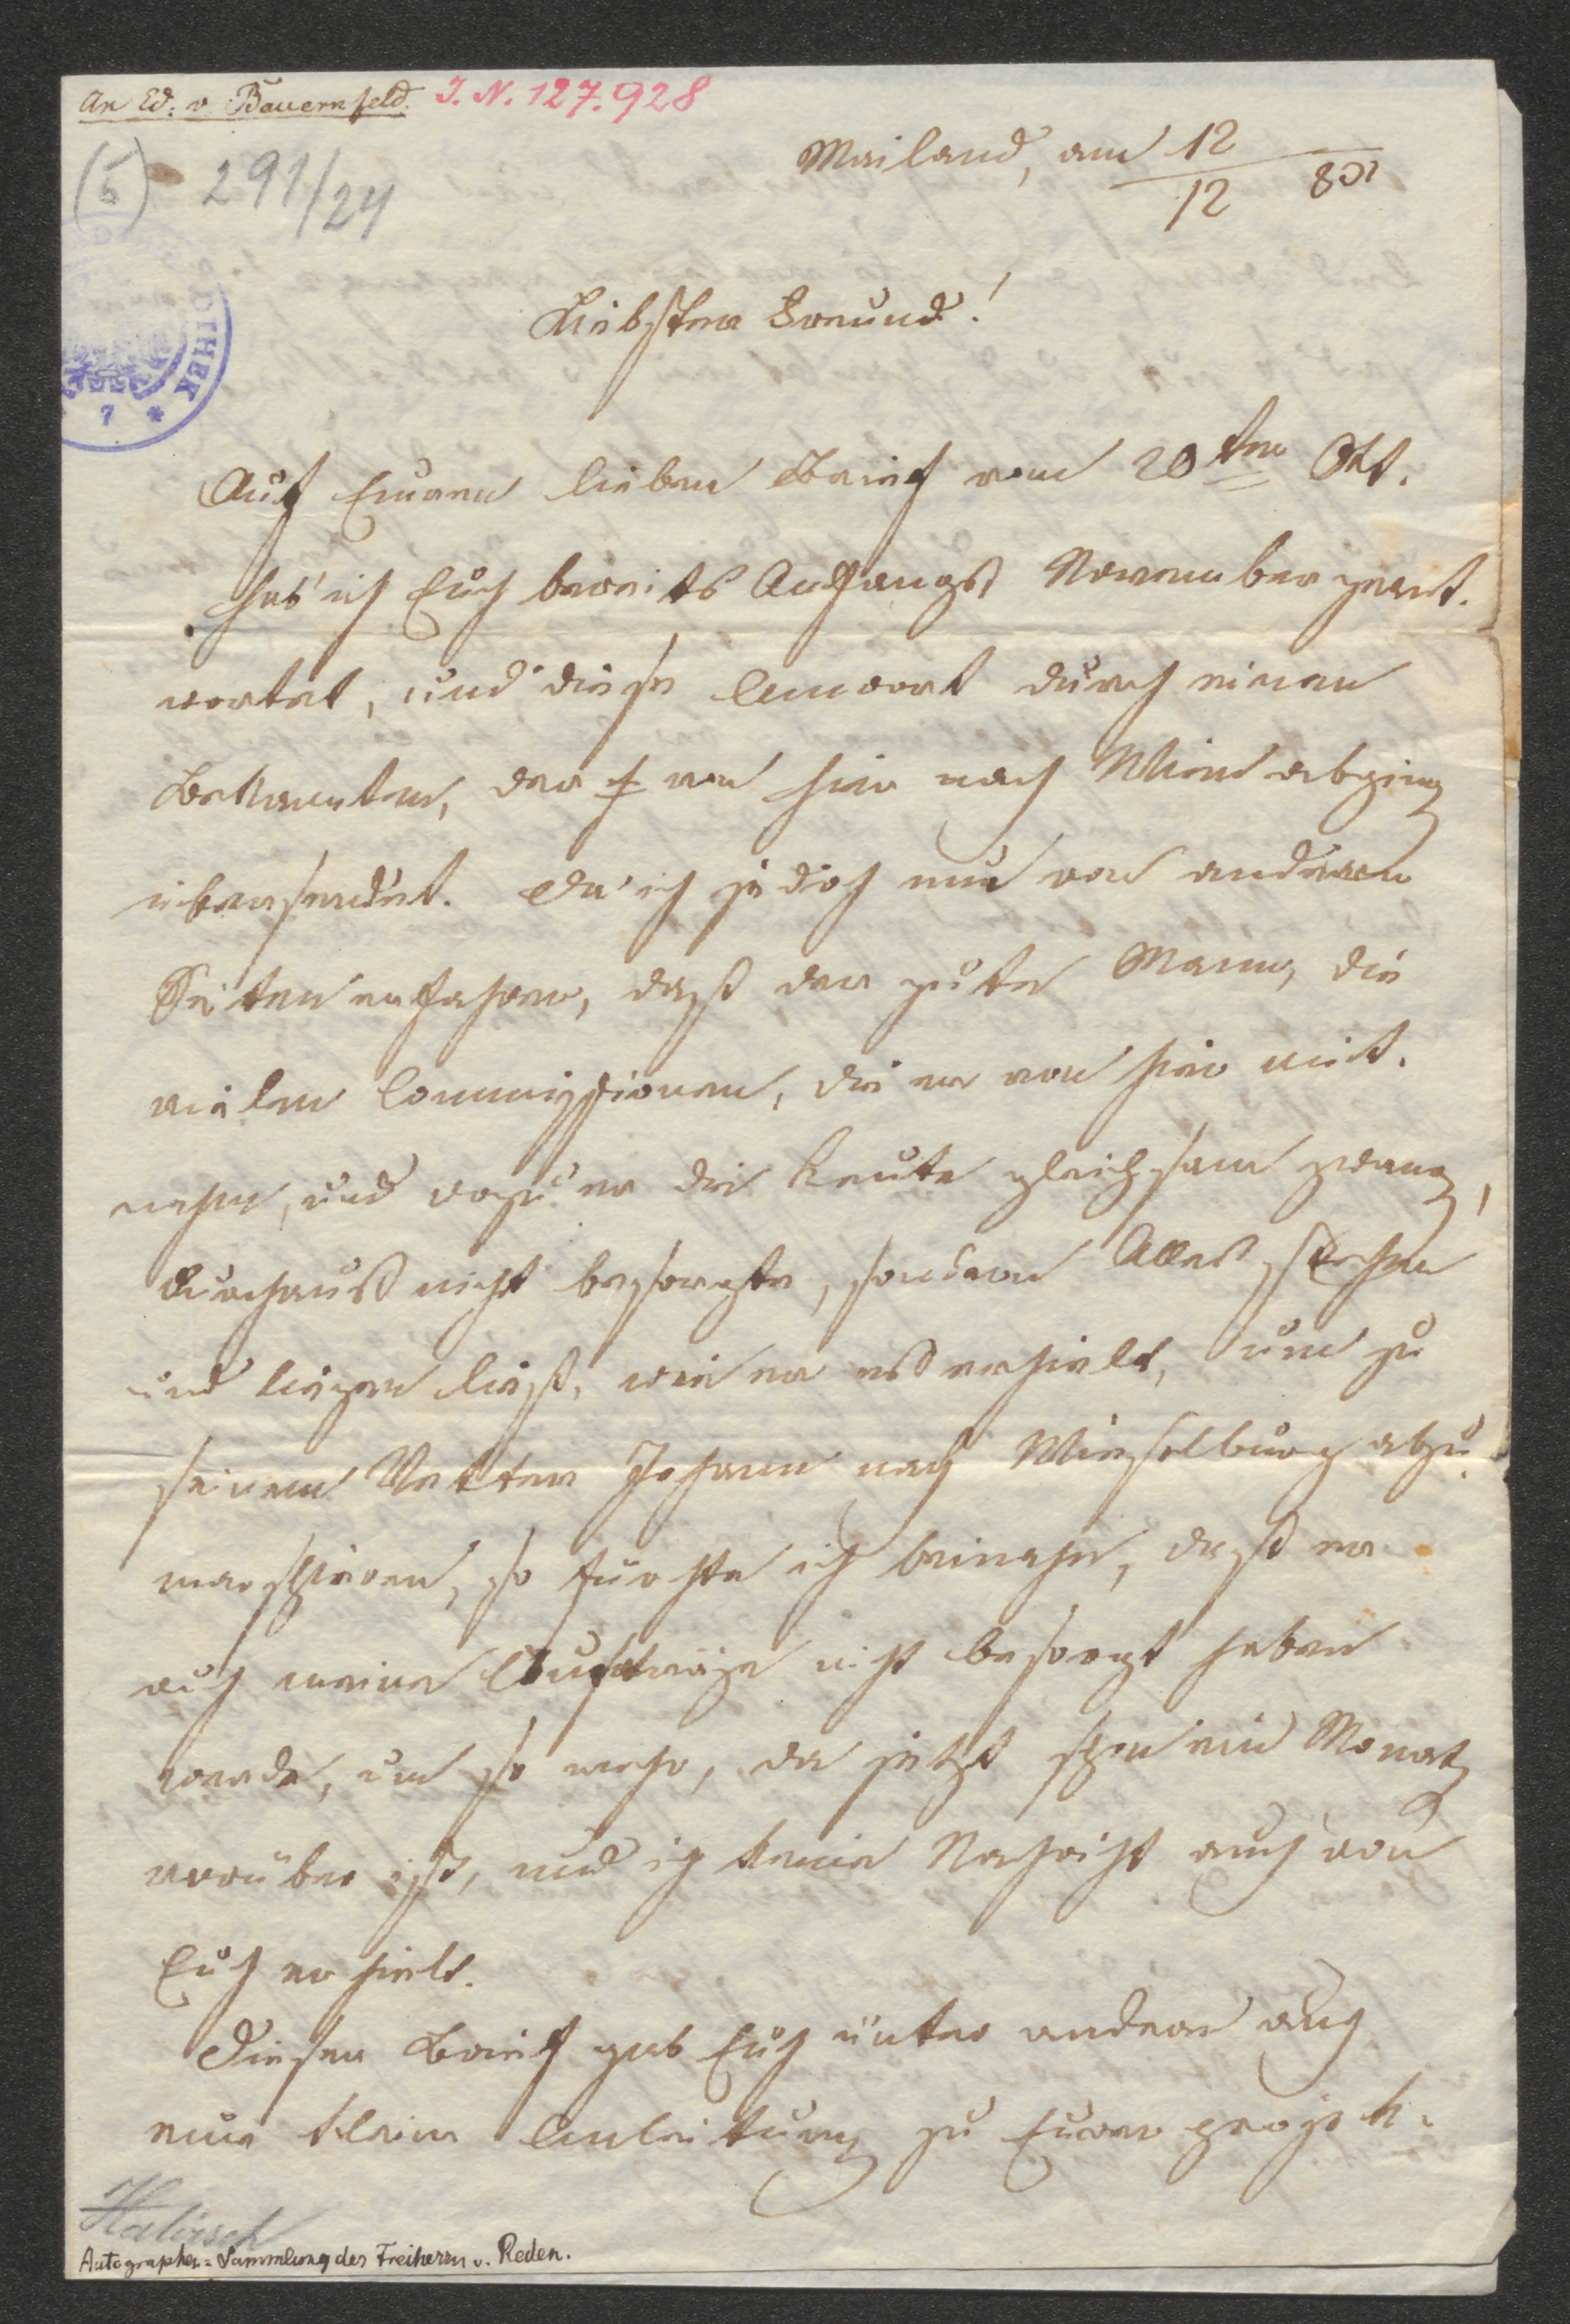 An Ed: v. Bauernfeld. I. N. 127.928
(5) 291/24
Mailand, am 12
12 831
THEK
7 *
Liebster Freund!
Auf Euren lieben Brief vom 20ten Okt.
hab' ich Euch bereits Anfangs November geant-
wortet, und diese Antwort durch einen
Bekannten, der von hier nach Wien abging
übersendet. Da ich jedoch nun von anderen
Seiten erfahren, daß der gute Mann, die
vielen Commissionen, die er von hier mit-
nahm, und wozu er die Leute gleichsam zwang,
durchaus nicht besorgte, sondern Alles stehen
und liegen ließ, wie er es erhielt, um zu
seinem Vetter Johann nach Wieselburg abzu-
marschieren, so fürchte ich beinahe, daß er
auch meine Aufträge nicht besorgt haben
werde, um so mehr, da jetzt schon ein Monat
vorüber ist, und ich keine Nachricht auch von
Euch erhielt.
Dieser Brief gab Euch unter andern auch
eine kleine Anleitung zu Eurer projek-
Halirsch
Autographen-Sammlung des Freiherrn v. Reden.